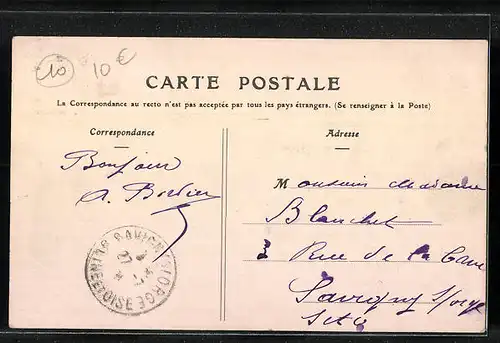 10 10 €
CARTE POSTALE
La Correspondance au recto n'est pas acceptée par tous les pays étrangers. (Se renseigner à la Poste)
Correspondance
Adresse
Bonjour
A. Bordier
Monsieur Madame
Blanchet
3 Rue de la
Savigny s/orge
SAVIGNY S/ ORGE
SEINE ET OISE